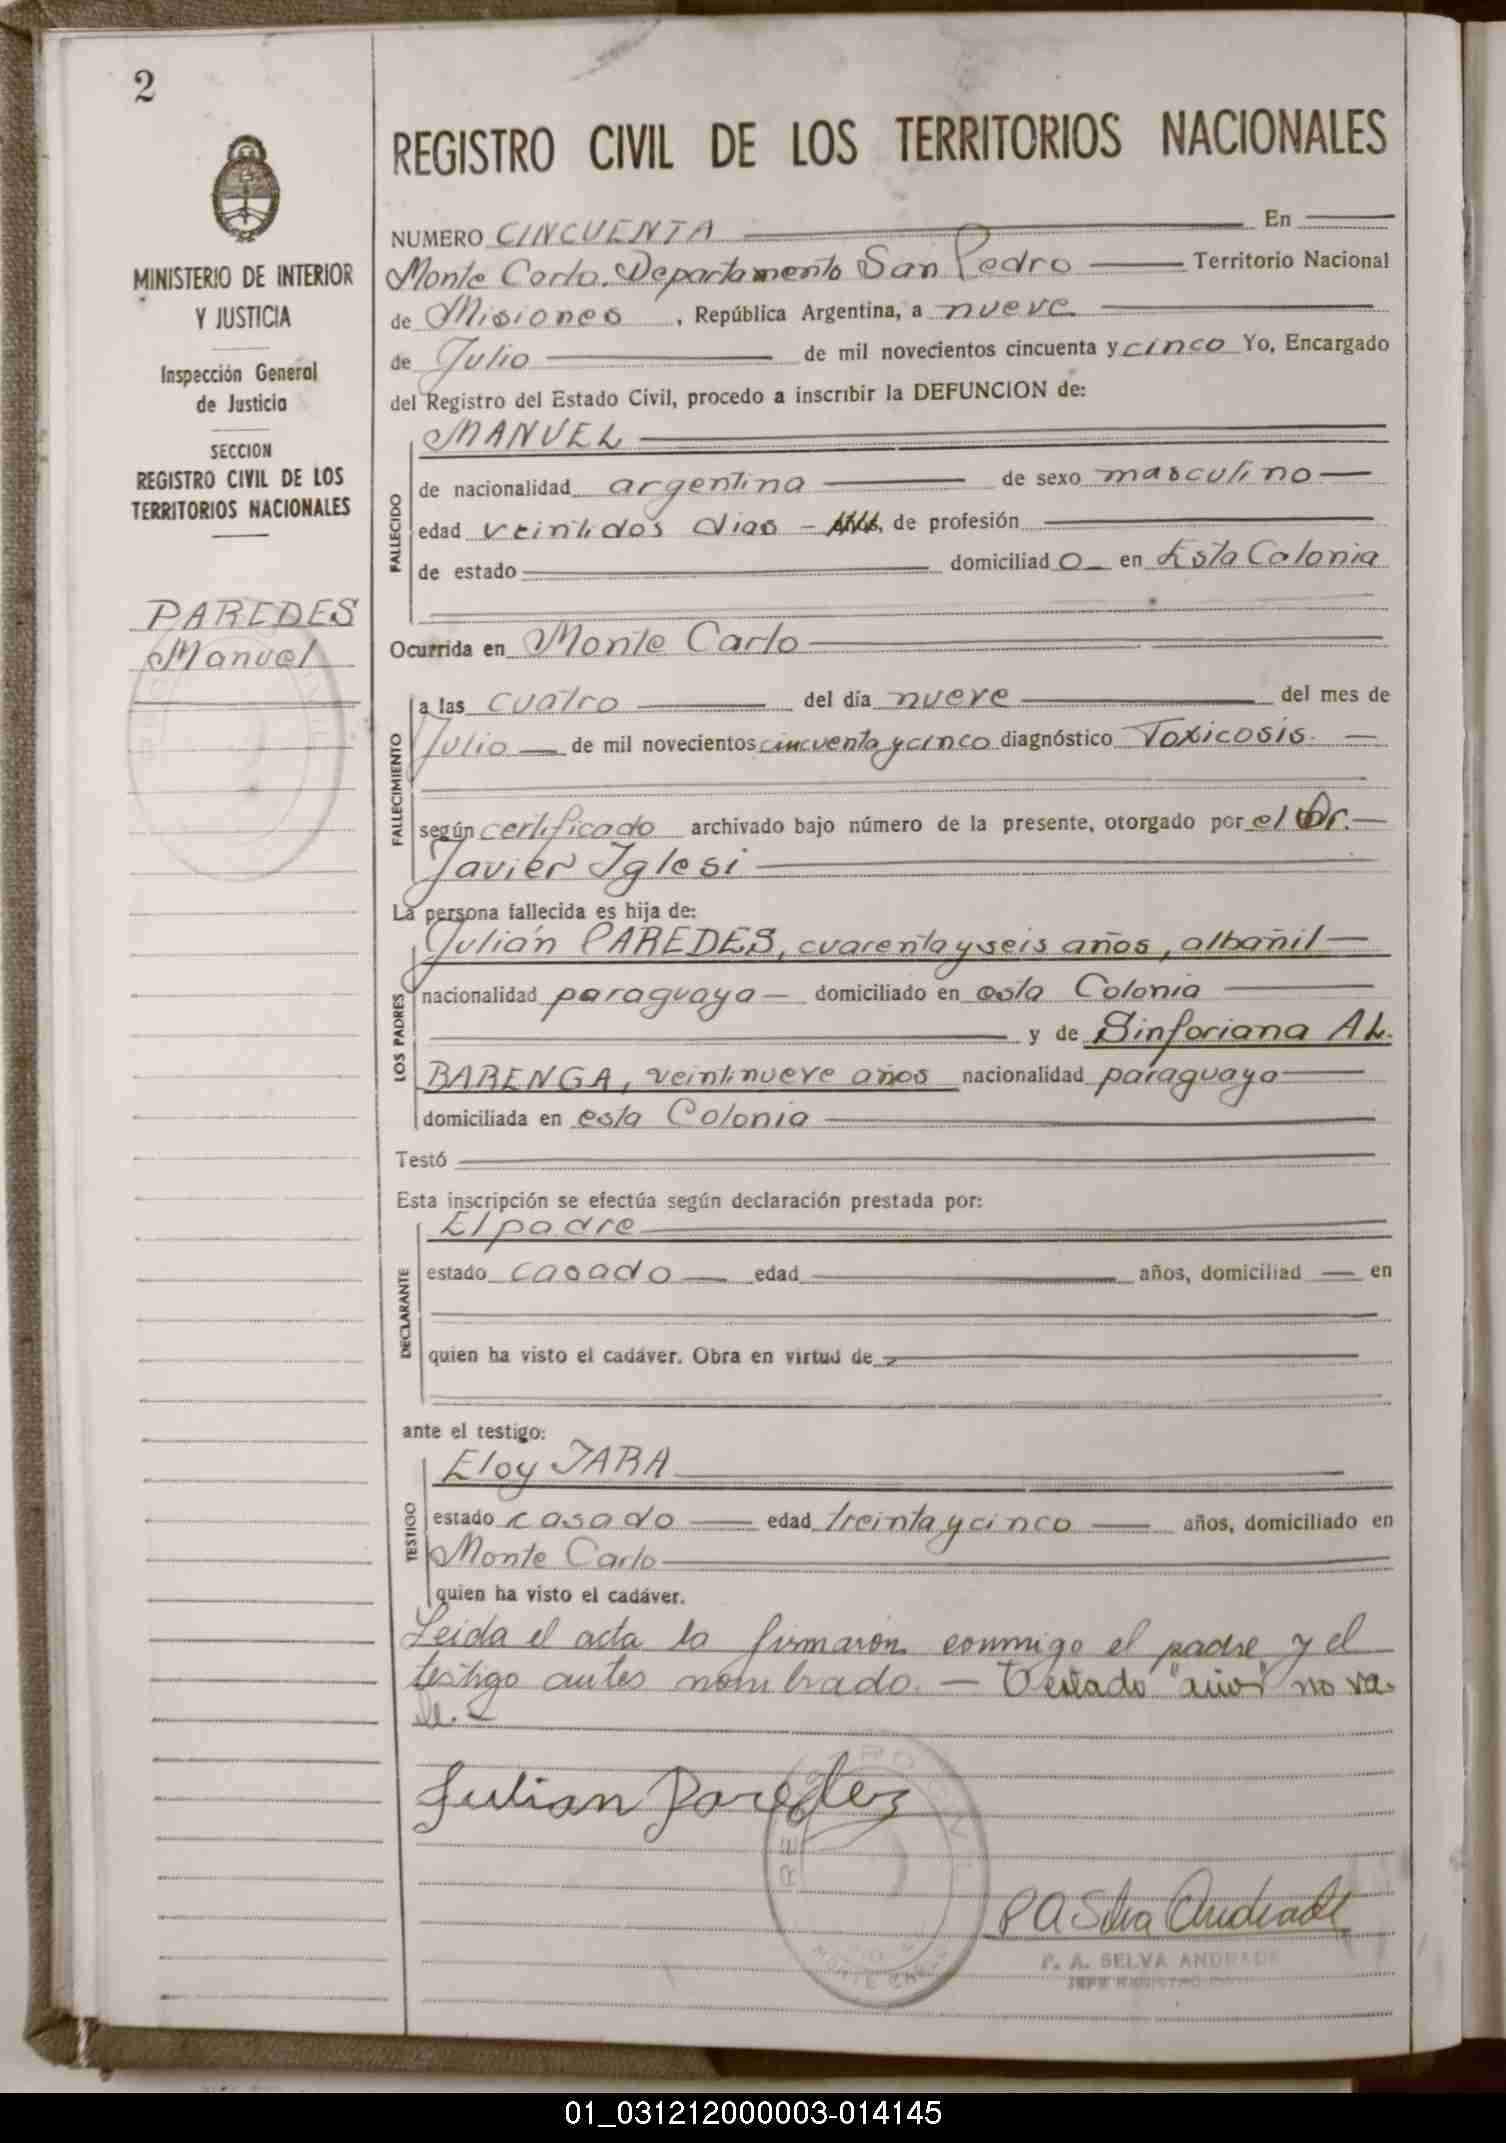 2
REGISTRO CIVIL DE LOS TERRITORIOS NACIONALES
MINISTERIO DE INTERIOR
Y JUSTICIA
Inspección General
de Justicia
SECCION
REGISTRO CIVIL DE LOS
TERRITORIOS NACIONALES
PAREDES
Manuel
NUMERO CINCUENTA En
Monte Carlo. Departamento San Pedro Territorio Nacional
de Misiones, República Argentina, a nueve
de Julio de mil novecientos cincuenta y cinco Yo, Encargado
del Registro del Estado Civil, procedo a inscribir la DEFUNCION de:
FALLECIDO
MANUEL
de nacionalidad argentina de sexo masculino
edad veintidos dias -, de profesión
de estado domiciliado en Esta Colonia
Ocurrida en Monte Carlo
FALLECIMIENTO
a las cuatro del día nueve del mes de
Julio de mil novecientos cincuenta y cinco diagnóstico Toxicosis.
según certificado archivado bajo número de la presente, otorgado por el Dr.
Javier Iglesi
La persona fallecida es hija de:
LOS PADRES
Julián PAREDES, cuarenta y seis años, albañil
nacionalidad paraguaya domiciliado en esta Colonia
y de Sinforiana AL-
BARENGA, veintinueve años nacionalidad paraguaya
domiciliada en esta Colonia
Testó
Esta inscripción se efectúa según declaración prestada por:
DECLARANTE
El padre
estado casado edad años, domiciliad en
quien ha visto el cadáver. Obra en virtud de
ante el testigo:
TESTIGO
Eloy JARA
estado casado edad treinta y cinco años, domiciliado en
Monte Carlo
quien ha visto el cadáver.
Leida el acta la firmaron conmigo el padre y el
testigo antes nombrado. - Testado "años" no va-
le.
Julian Paredez
P A Selva Andrade
P. A. SELVA ANDRADE
JEFE REGISTRO
MONTE CARLO
01_031212000003-014145